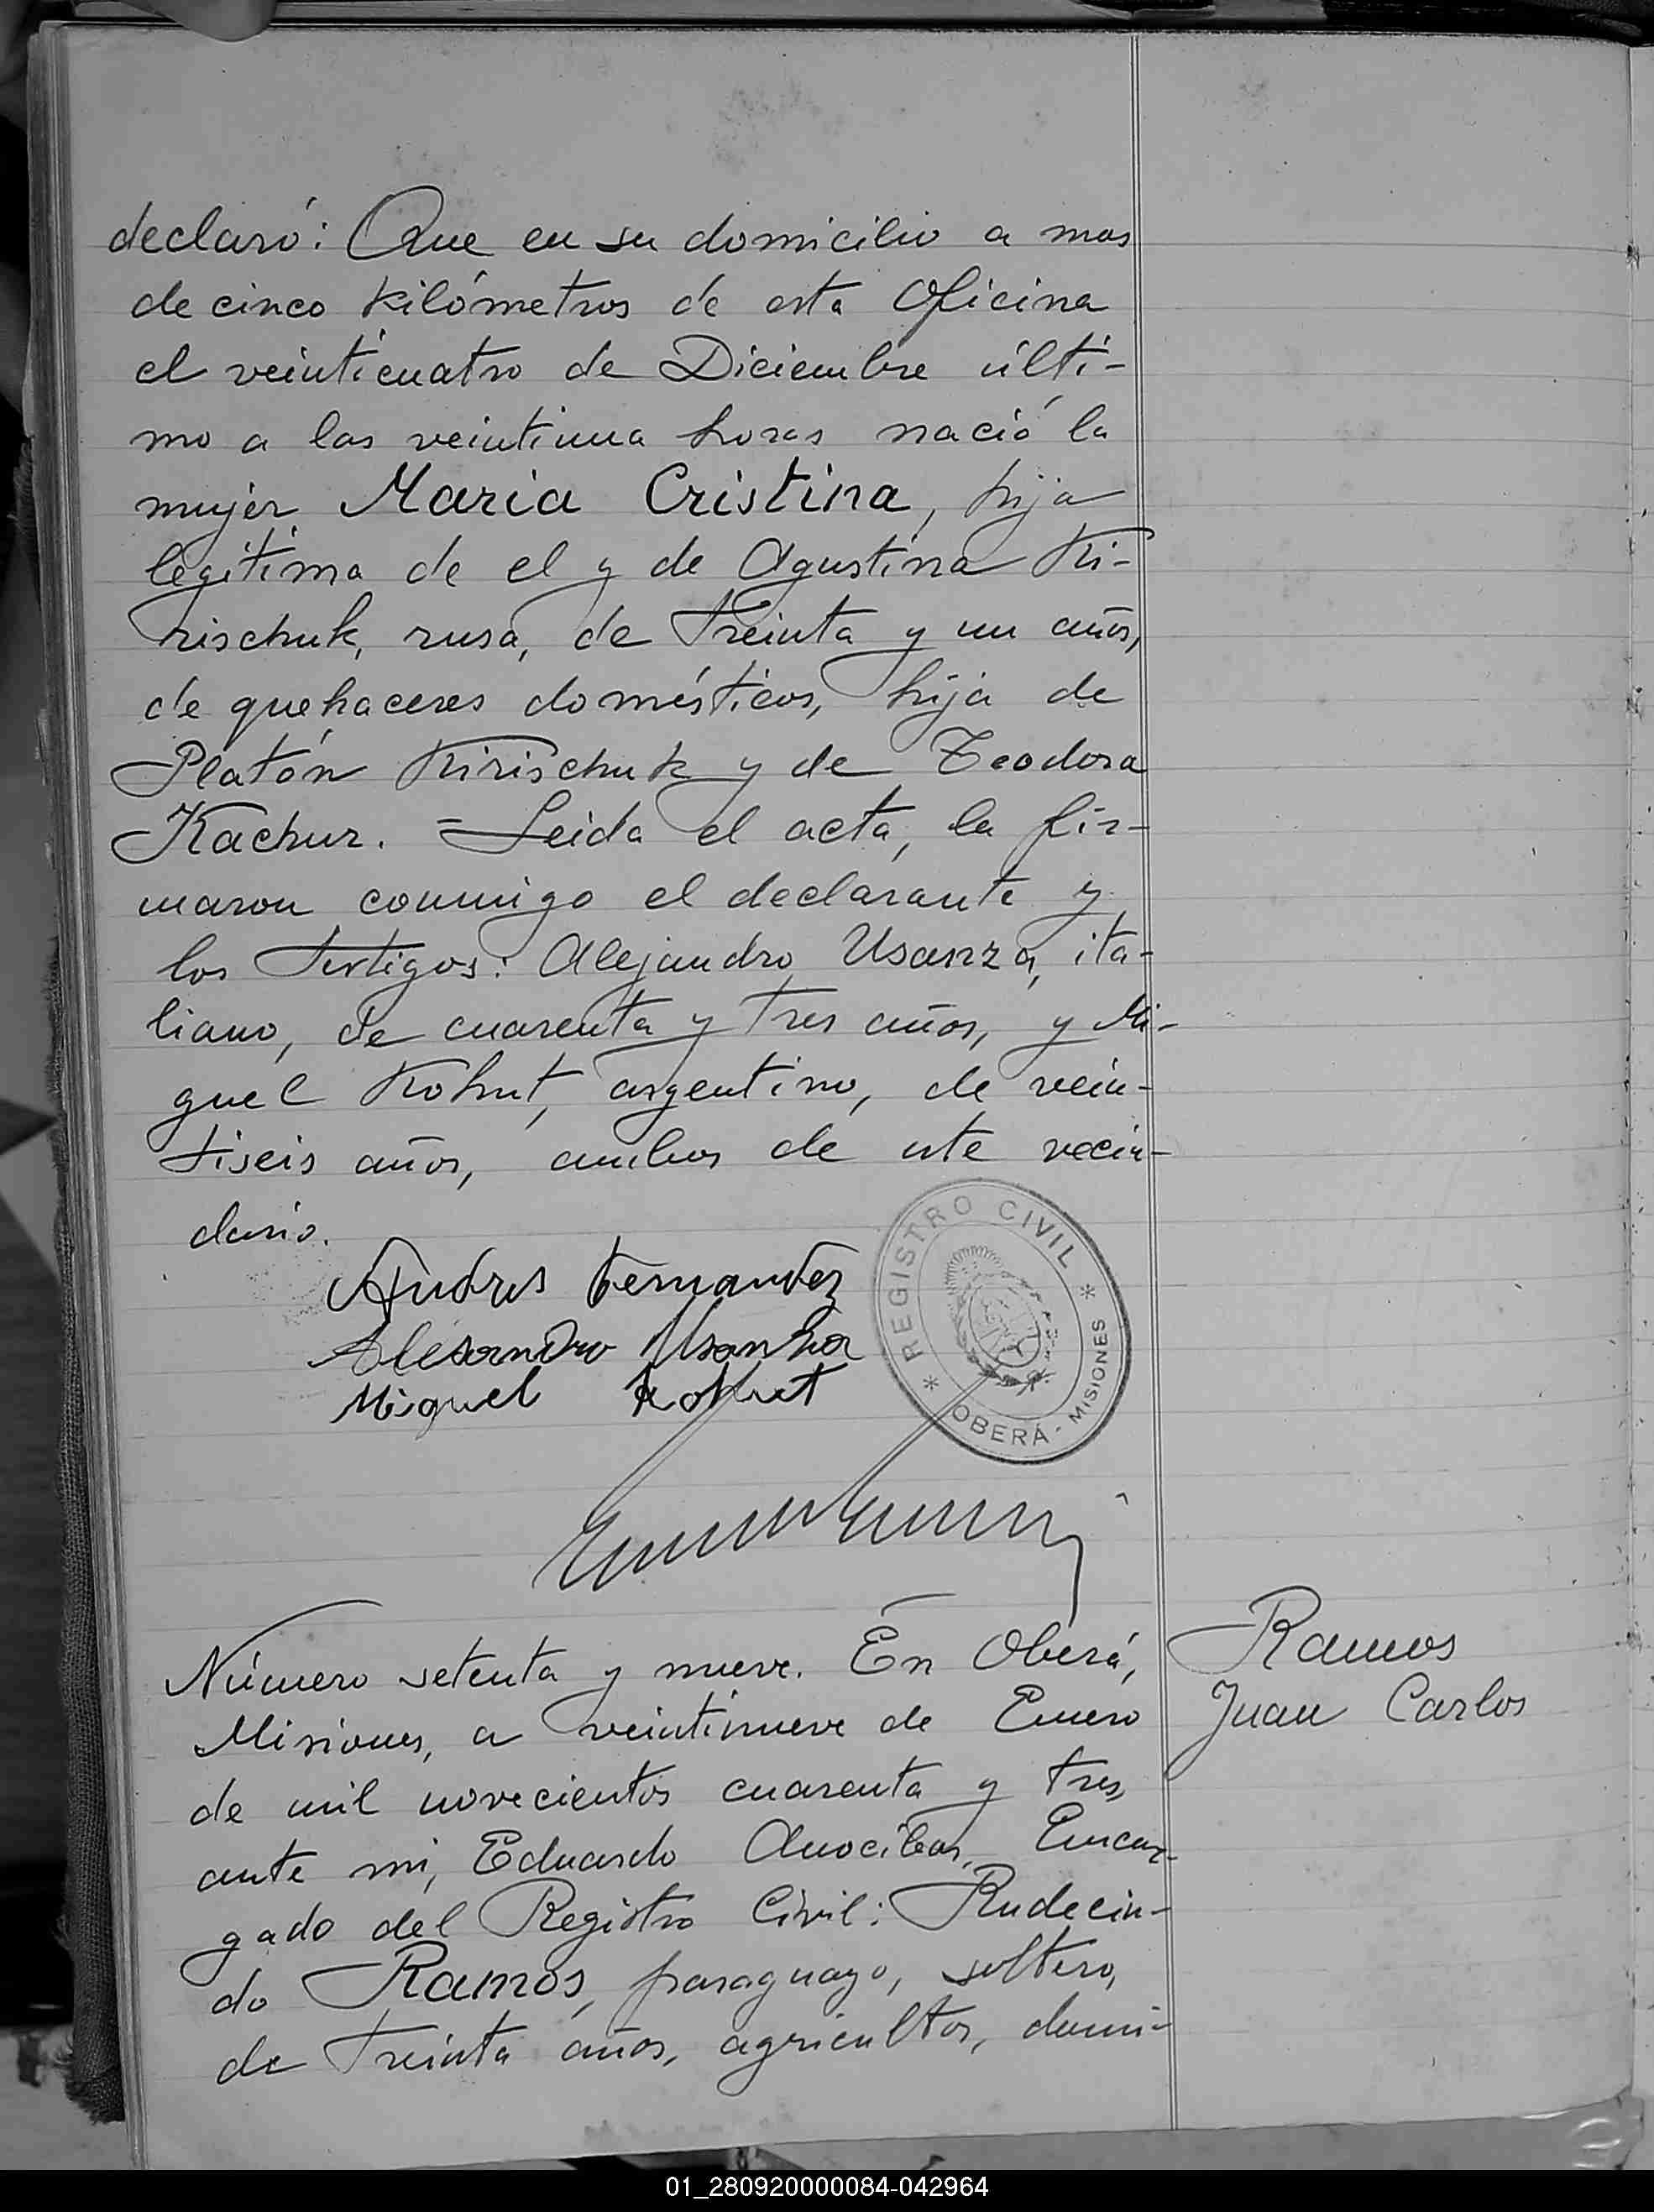 declaró: Que en su domicilio a mas
de cinco kilómetros de esta Oficina
el veinticuatro de Diciembre últi-
mo a las veintiuna horas nació la
mujer Maria Cristina, hija
legitima de el y de Agustina Ki-
rischuk, rusa, de treinta y un años,
de quehaceres domésticos, hija de
Platón Kirischuk y de Teodora
Kachur. = Leida el acta, la fir-
maron conmigo el declarante y
los testigos: Alejandro Usanza, ita-
liano, de cuarenta y tres años, y Mi-
guel Kohut, argentino, de vein-
tiseis años, ambos de este vecin-
dario.
Andres Fernandez
Alesandro Usanza
Miguel Kohut
* REGISTRO CIVIL *
OBERÁ - MISIONES
Número setenta y nueve. En Oberá,
Misiones, a veintinueve de Enero
de mil novecientos cuarenta y tres,
ante mi, Eduardo Anocibar, Encar-
gado del Registro Civil: Rudecin-
do Ramos, paraguayo, soltero,
de treinta años, agricultor, domi-
Ramos
Juan Carlos
01_280920000084-042964